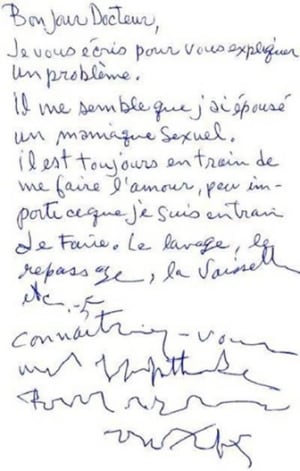 Bonjour Docteur,
Je vous écris pour vous expliquer
un problème.
Il me semble que j'ai épousé
un maniaque sexuel.
il est toujours en train de
me faire l'amour, peu im-
porte ce que je suis en train
de faire. Le lavage, le
repassage, la vaisselle
etc...
connaitriez-vous